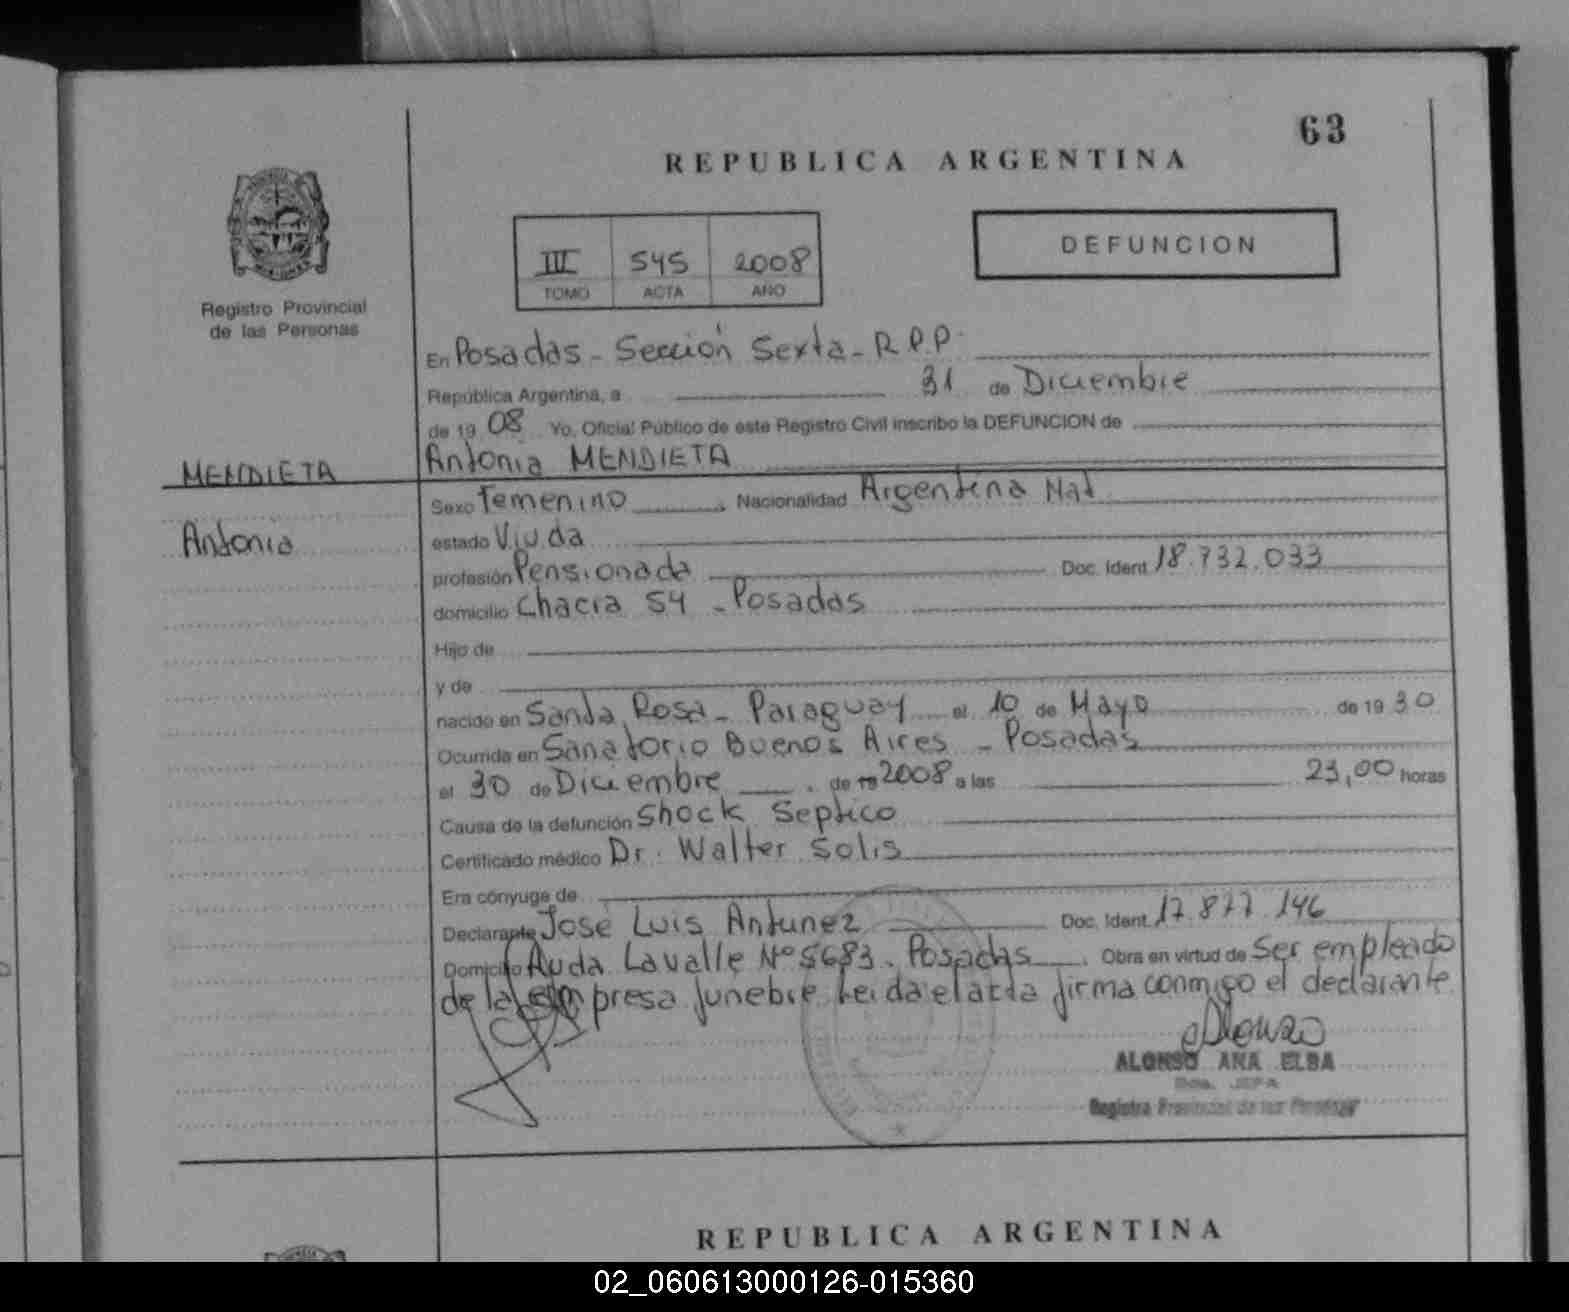 63
REPUBLICA ARGENTINA
III 545 2008
TOMO ACTA AÑO
DEFUNCION
Registro Provincial
de las Personas
En Posadas - Sección Sexta - R.P.P.
República Argentina, a 31 de Diciembre
de 19 08 Yo, Oficial Público de este Registro Civil inscribo la DEFUNCION de
MENDIETA
Antonia MENDIETA
Antonia
Sexo Femenino, Nacionalidad Argentina Nat.
estado Viuda
profesión Pensionada Doc. Ident. 18.732.033
domicilio Chacra 54 - Posadas
Hijo de
y de
nacido en Santa Rosa - Paraguay el 10 de Mayo de 19 30
Ocurrida en Sanatorio Buenos Aires - Posadas
el 30 de Diciembre de 19 2008 a las 23,00 horas
Causa de la defunción Shock Septico
Certificado médico Dr. Walter Solis
Era cónyuge de
Declarante Jose Luis Antunez Doc. Ident. 17.877.146
Domicilio Avda Lavalle Nº 5683. Posadas. Obra en virtud de Ser empleado
de la empresa funebre. Leida el acta firma conmigo el declarante.
ALONSO ANA ELBA
JEFA
Registro Provincial de las Personas
REPUBLICA ARGENTINA
02_060613000126-015360